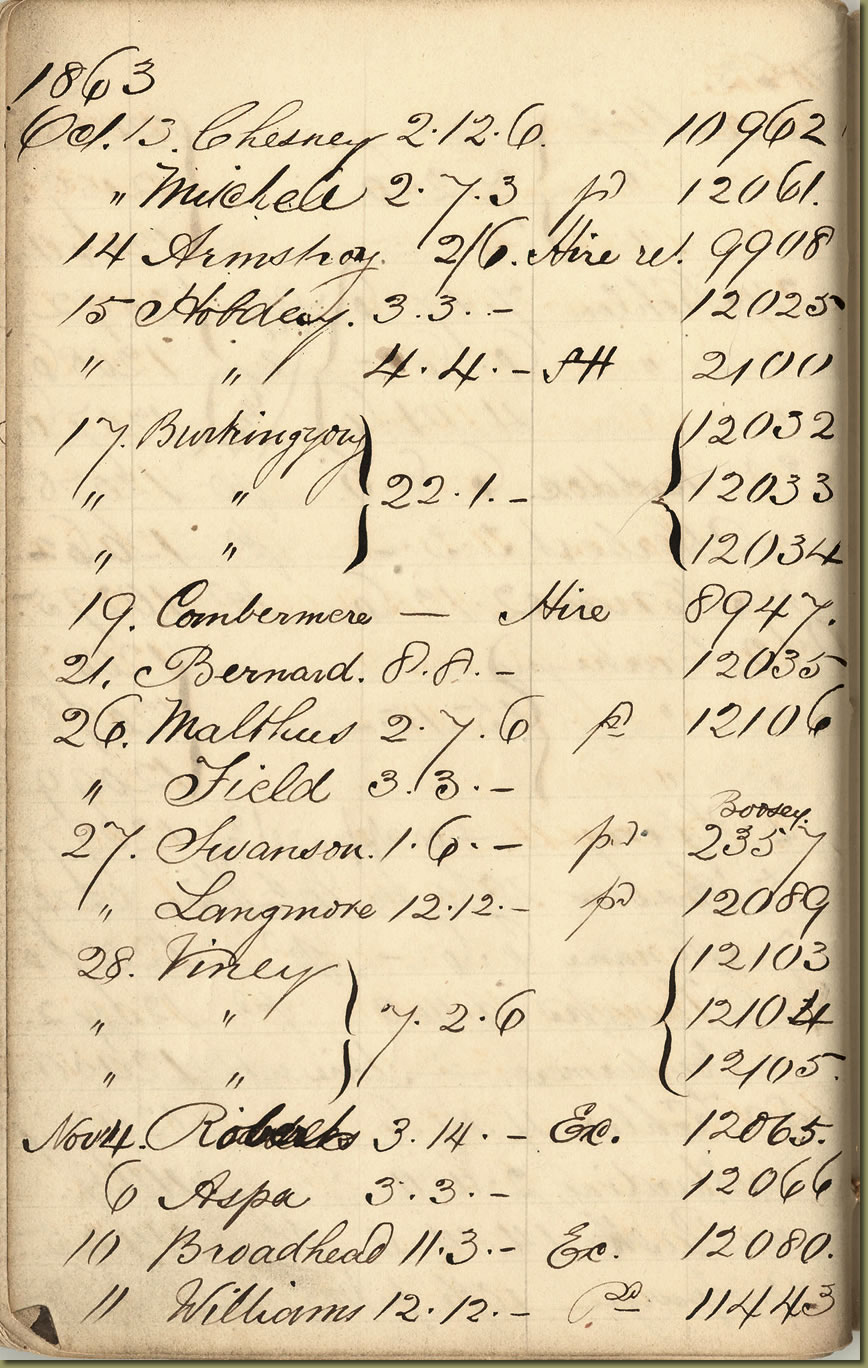 1863
Oct. 13. Chesney 2.12.6. 10962
" Michell 2.7.3 pd 12061.
14 Armstrong. 2/6. Hire 9908
15 Hobday. 3.3.- 12025
" " 4.4.- SH 2100
17. 12032
" " 22.1.- 12033
" " 12034
19. Combermere — Hire 8947.
21. Bernard. 8.8.- 12035
26. Malthus 2.7.6 pd 12106
" Field 3.3.-
Boosey.
27. Swanson. 1.6.- pd. 2357
" Langmore 12.12.- pd 12089
28. Viney 12103
" " 7.2.6 12104
" " 12105.
Nov 4. Roberts 3.14.- Ex. 12065.
6 Aspa 3.3.- 12066
10 Broadhead 11.3.- Ex. 12080.
11 Williams 12.12.- Pd 11443